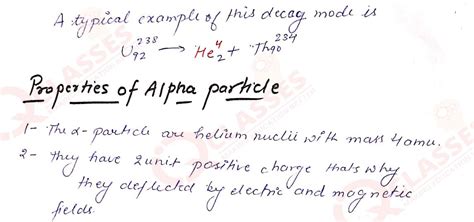 A typical example of this decay mode is
U₉₂²³⁸ → He₂⁴ + Th₉₀²³⁴
Properties of Alpha particle
1- The α-particle are helium nuclii with mass 4amu.
2- They have 2unit positive charge thats why
they deflected by electric and magnetic
fields.